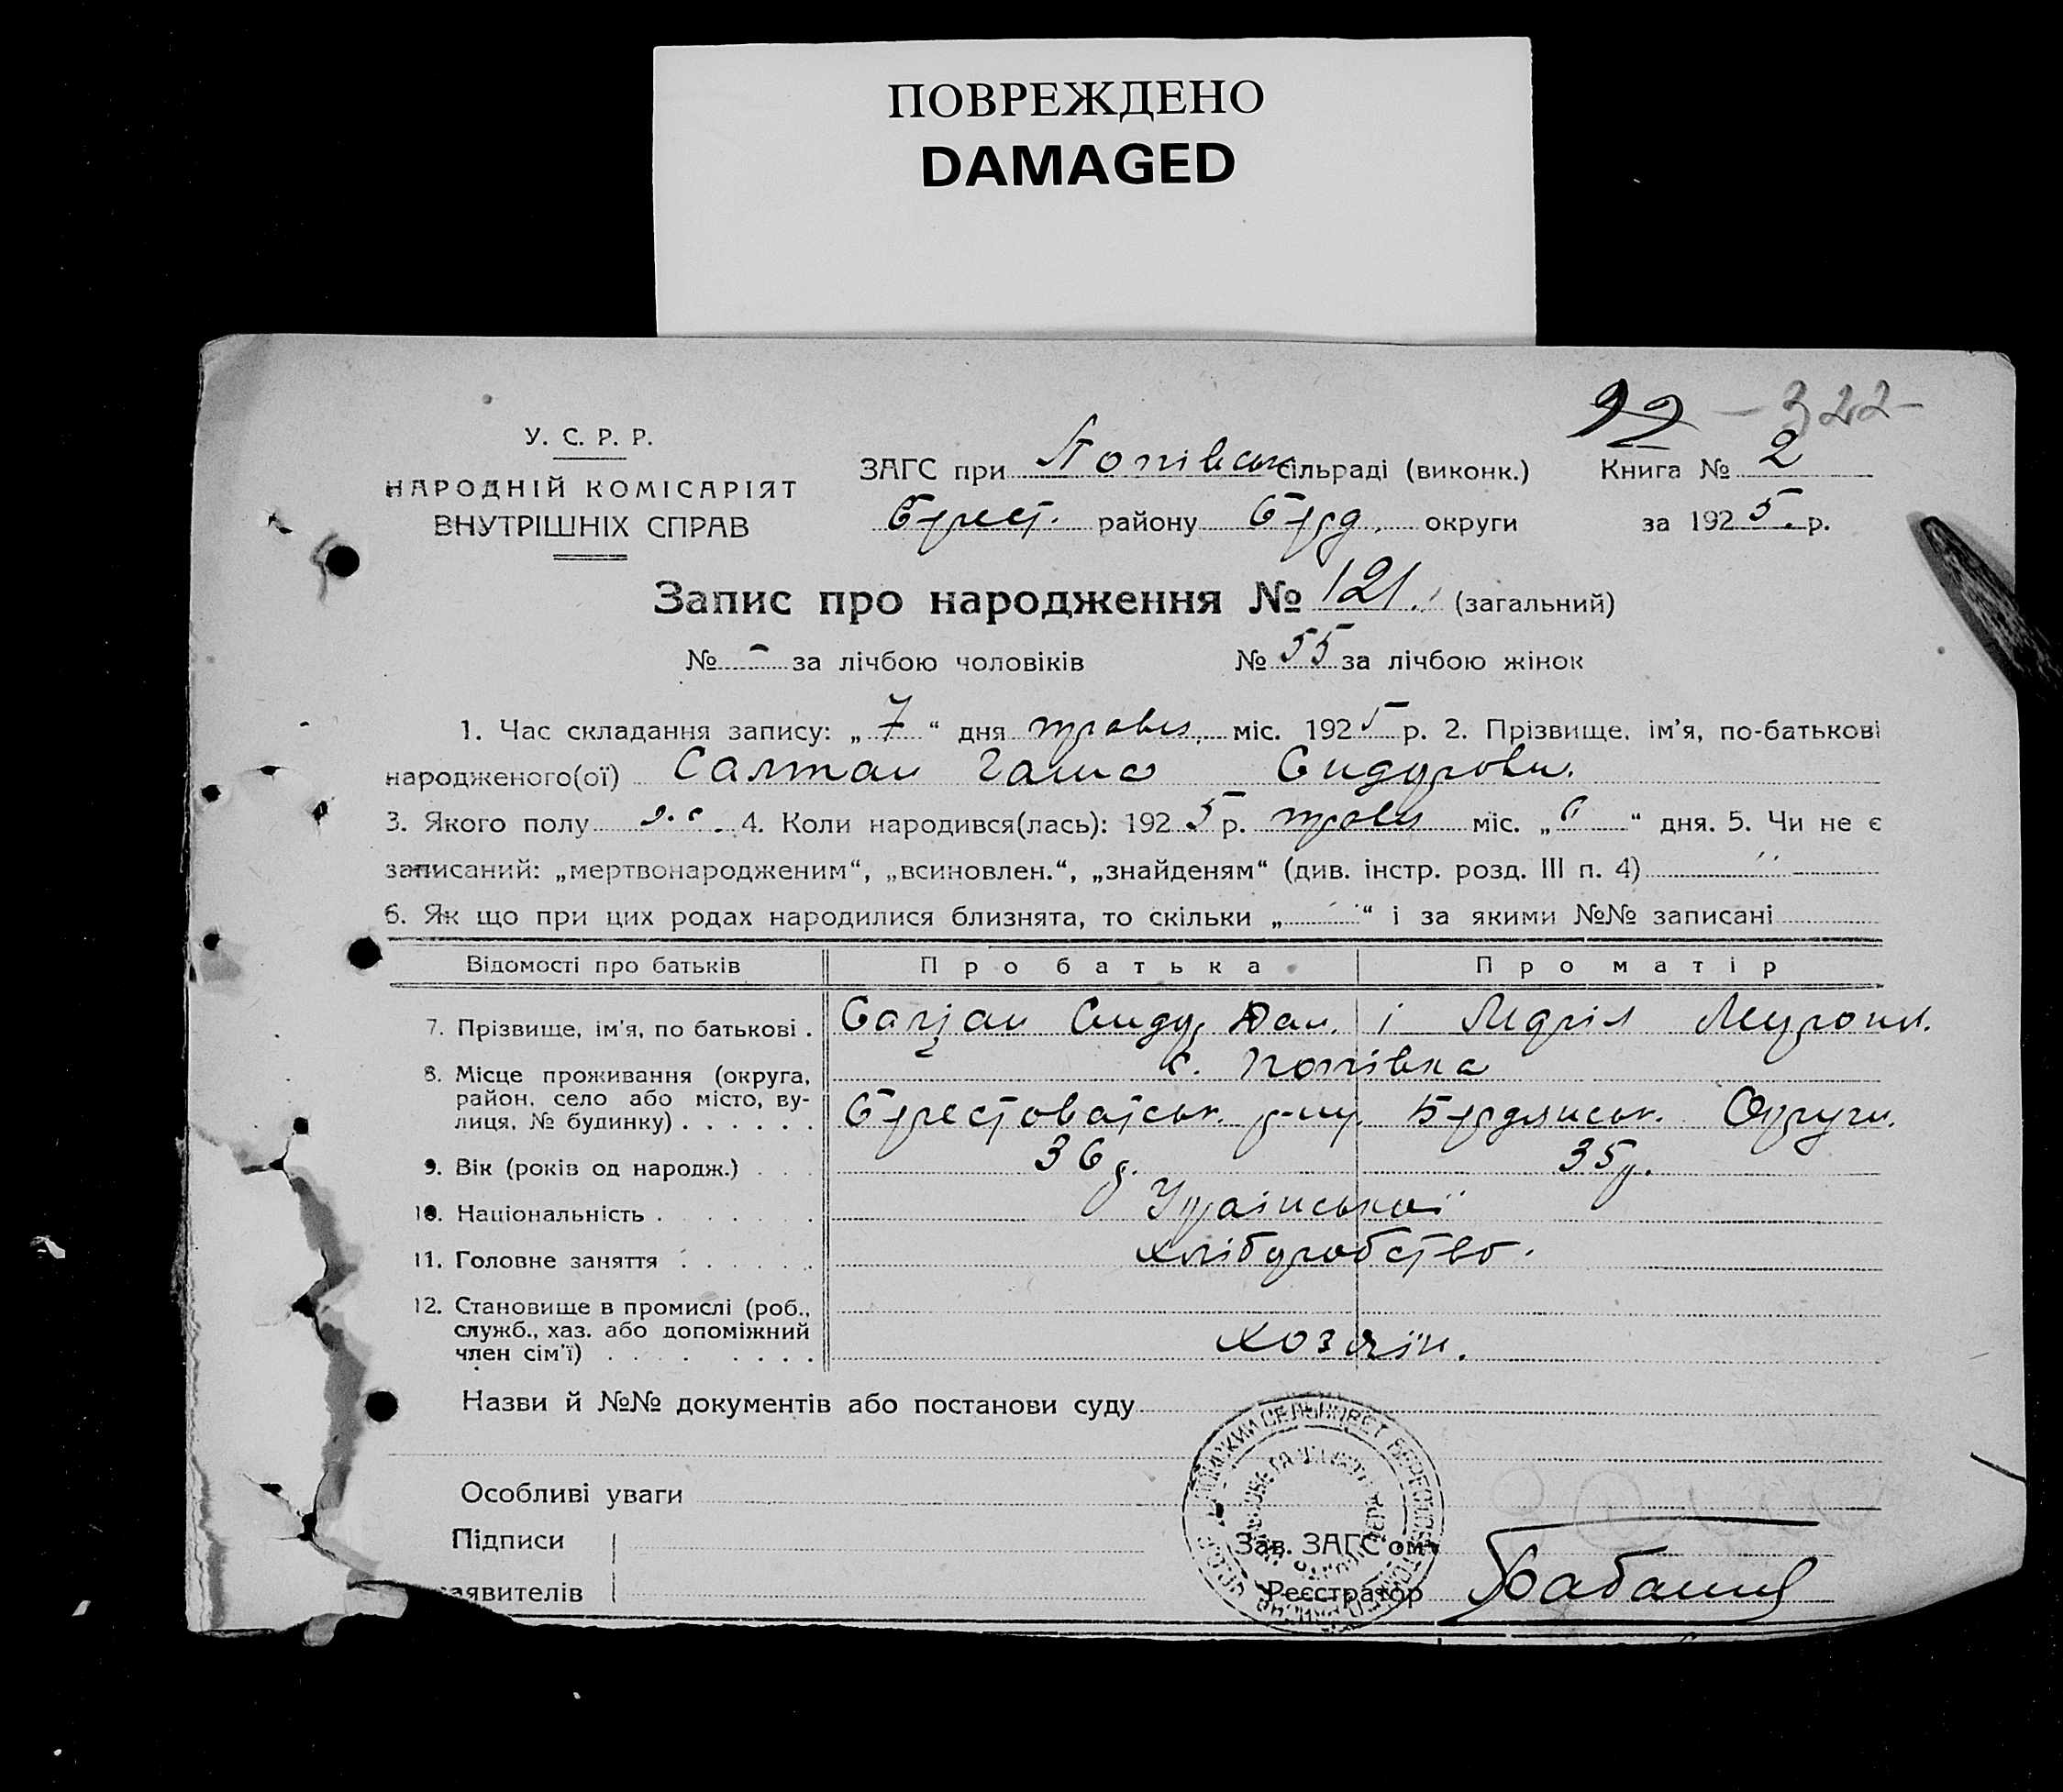 ПОВРЕЖДЕНО
DAMAGED
92 - 322 -
У. С. Р. Р.
НАРОДНІЙ КОМІСАРІЯТ
ВНУТРІШНІХ СПРАВ
ЗАГС при Попівськ сільраді (виконк.) Книга № 2
Брест. району Брд. округи за 1925 р.
Запис про народження № 121. (загальний)
№ - за лічбою чоловіків № 55 за лічбою жінок
1. Час складання запису: „ 7 “ дня травн. міс. 1925 р. 2. Прізвище, ім'я, по-батькові
народженого(ої) Салтан Ганна Сидоровн.
3. Якого полу 4. Коли народився(лась): 1925 р. травн міс. „ 6 “ дня. 5. Чи не є
записаний: „мертвонародженим“, „всиновлен.“, „знайденям“ (див. інстр. розд. III п. 4)
6. Як що при цих родах народилися близнята, то скільки „ “ і за якими №№ записані
Відомості про батьків Про батька Про матір
7. Прізвище, ім'я, по батькові . Салтан Сидор Дан. і Марія Миронн.
8. Місце проживання (округа, с. Попівка
район, село або місто, ву-
лиця, № будинку) . . . . . . Берестоватськ. р-ну Бердянськ. Округи.
9. Вік (років од народж.) . . . 36 р. 35 р.
10. Національність . . . . . . . Української
11. Головне заняття . . . . . . хліборобство.
12. Становище в промислі (роб.,
служб., хаз. або допоміжний
член сім'ї) . . . . . . . . хозяїн.
Назви й №№ документів або постанови суду
Особливі уваги
Підписи Зав. ЗАГС'ом
заявителів Реєстратор